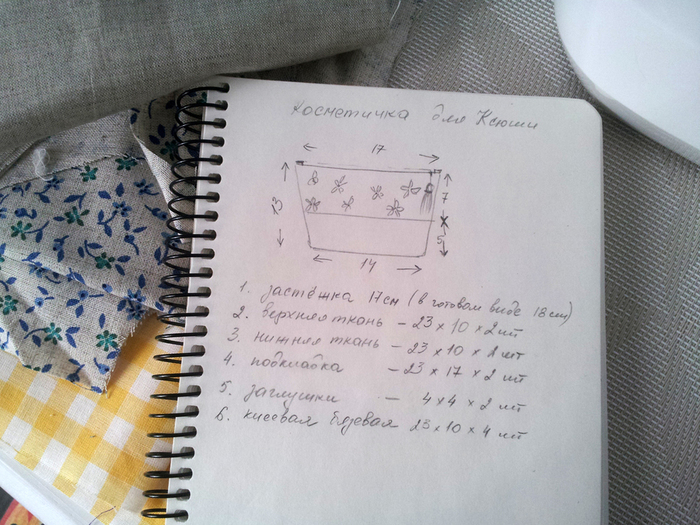 Косметичка для Ксюши
17
13
7
5
14
1. застёжка 17см (в готовом виде 18см)
2. верхняя ткань – 23 x 10 x 2 шт
3. нижняя ткань – 23 x 10 x 1 шт
4. подкладка – 23 x 17 x 2 шт
5. заглушки – 4 x 4 x 2 шт
6. бязевая 23 x 10 x 4 шт